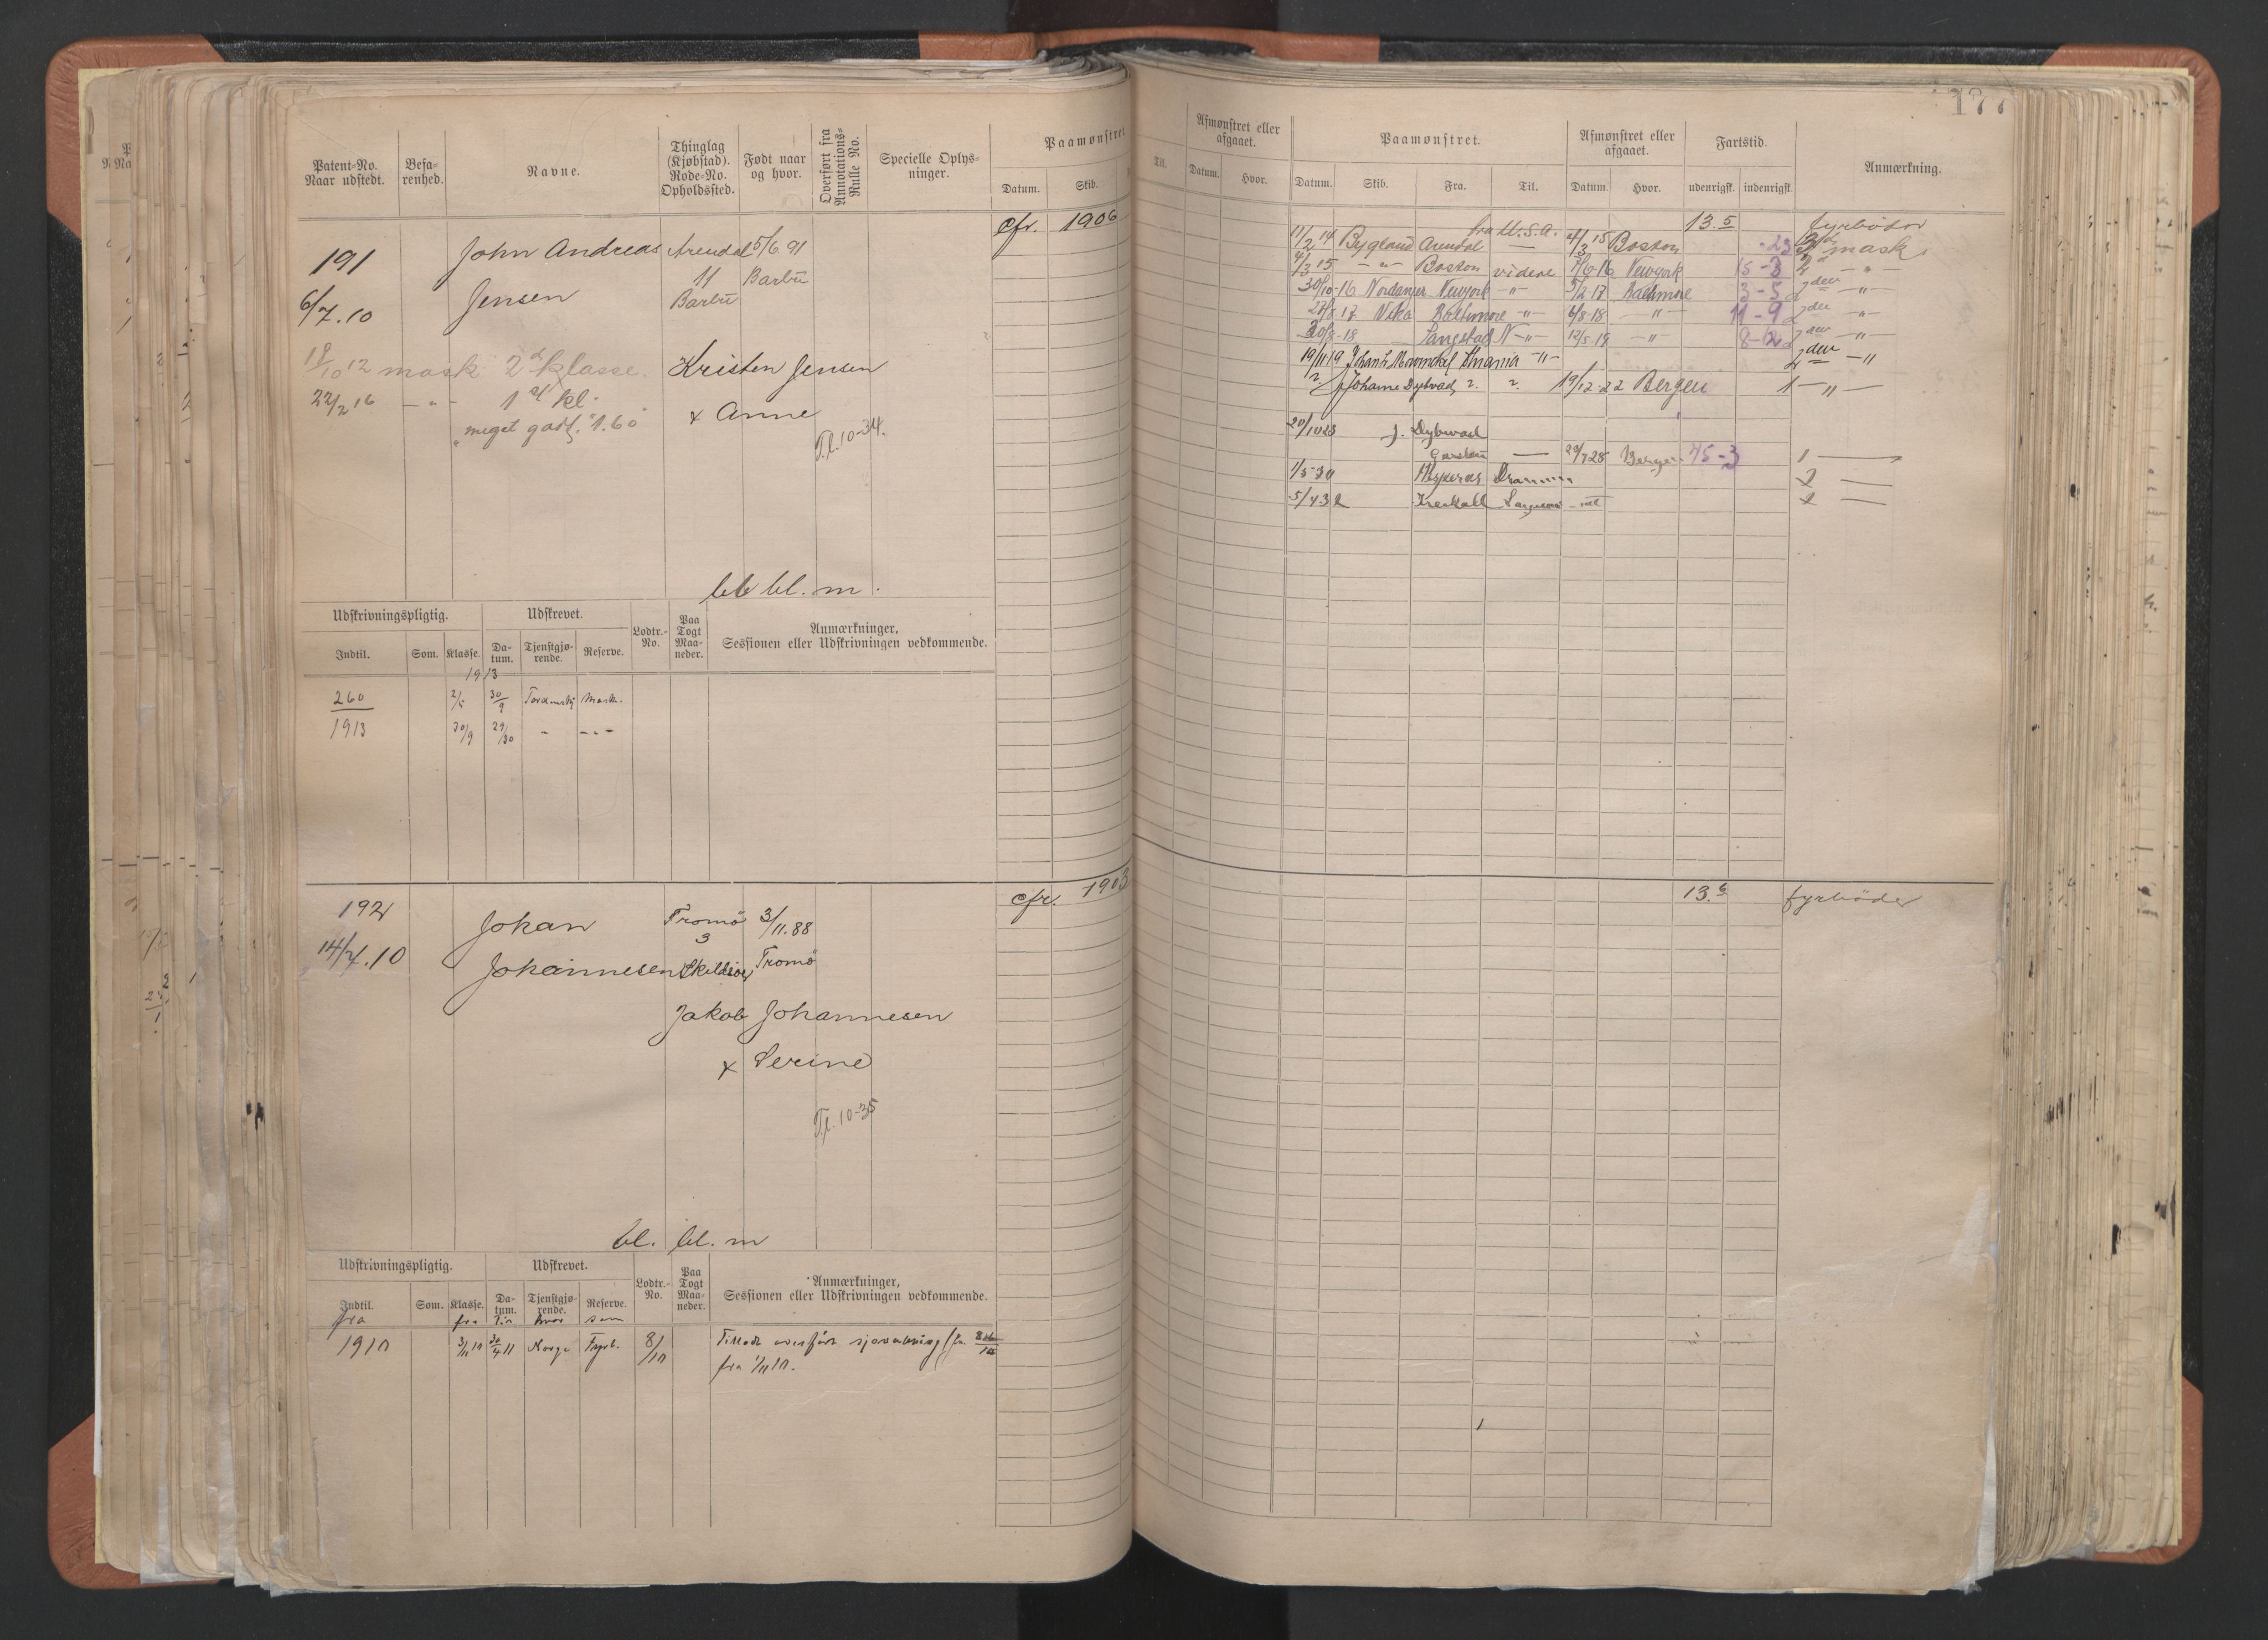 177
Patent-No. Naar udstedt.
Befa-renhed.
Navne.
Thinglag (Kjøbstad). Rode-No. Opholdssted.
Født naar og hvor.
Overført fra Annotations-Rulle No.
Specielle Oplys-ninger.
Paamønstret
Datum. Skib.
Til.
Afmønstret eller afgaaet.
Datum. Hvor.
Paamønstret.
Datum. Skib. Fra. Til.
Afmønstret eller afgaaet.
Datum. Hvor.
Fartstid.
udenrigsk. indenrigsk.
Anmærkning.
191
6/7.10
John Andreas
Jensen
Arendal
11
Barbu
5/6 91
Barbu
cfr. 1906
18/10 12 mask 2d klasse.
Kristen Jensen
22/2 16 — " — 1st kl.
x Anne
"meget godt" 1.60
Tl. 10-34.
bl bl. m.
fra U.S.A. 13.5 fyrbøder
11/2 14 Bygland Arendal — 4/3 15 Boston - 23 3d mask.
4/3 15 — " — Boston videre 7/6-16 Newyork 15-3 2 — " —
30/10-16 Nordanger Newyork — " — 5/2-17 Baltimore 3-5 2den — " —
Vika Baltimore — " — 6/8-18 — " — 11-9 2den — " —
30/8-18 Langstad N — " — 12/5-19 — " — 8-2 2den — " —
19/11-19 — " — 2den — " —
? Johanne Dybwad ? ? 19/12-22 Bergen 1 — " —
20/10 23 J. Dybwad
— 29/7 28 Bergen 75-3 1 —
1/5-30 Drammen 2 —
5/4 32 2 —
Udskrivningspligtig.
Udskrevet.
Lodtr.-No.
Paa Togt Maa-neder.
Anmærkninger, Sessionen eller Udskrivningen vedkommende.
Indtil. Som. Klasse. Da-tum. Tjenstgjø-rende. Reserve.
1913
260 2/5 30/9 Tordenskj Mask.
1913 30/9 29/30 " — " —
192
14/7.10
Johan
Johannesen
Tromø
3
3/11.88
Tromø
cfr. 1903
13.6 fyrbøder
Jakob Johannesen
x Serine
Tl. 10-35
bl. bl. m
Udskrivningspligtig.
Udskrevet.
Lodtr.-No.
Paa Togt Maa-neder.
Anmærkninger, Sessionen eller Udskrivningen vedkommende.
Indtil. Som. Klasse. Da-tum. Tjenstgjø-rende. Reserve.
fra fra Til hvor som
1910 3/11 10 30/4 11 Norge Fyrb. 8/10 Tilladt overført sjøværning
fra 1/11 10.